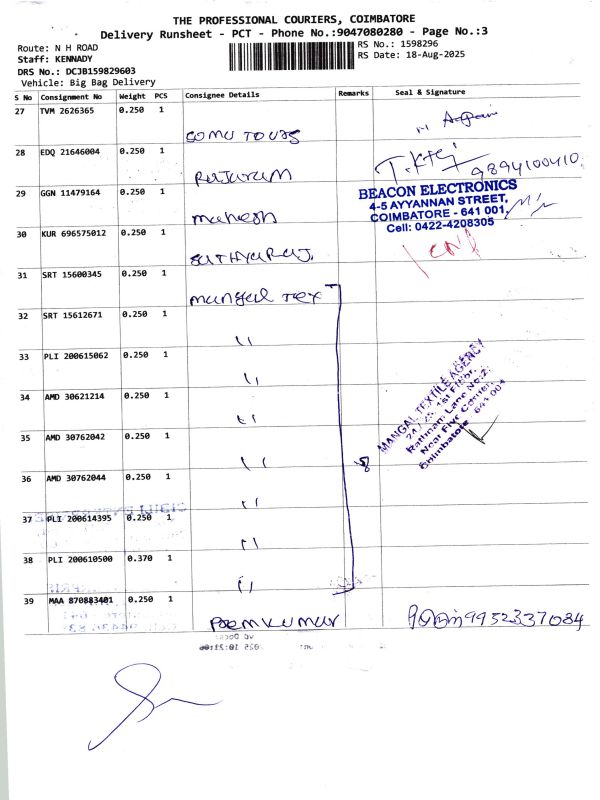 THE PROFESSIONAL COURIERS, COIMBATORE
Delivery Runsheet - PCT - Phone No.:9047080280 - Page No.:3
Route: N H ROAD
RS No.: 1598296
Staff: KENNADY
RS Date: 18-Aug-2025
DRS No.: DCJB159829603
Vehicle: Big Bag Delivery
S No Consignment No Weight PCS Consignee Details Remarks Seal & Signature
27 TVM 2626365 0.250 1
28 EDQ 21646004 0.250 1 Rajaram
9894100410
29 GGN 11479164 0.250 1 mahesh
BEACON ELECTRONICS
4-5 AYYANNAN STREET,
COIMBATORE - 641 001
Cell: 0422-4208305
30 KUR 696575012 0.250 1 sathyaraj.
31 SRT 15600345 0.250 1 mangal Tex
32 SRT 15612671 0.250 1 "
33 PLI 200615062 0.250 1 "
34 AMD 30621214 0.250 1 "
35 AMD 30762042 0.250 1 "
8
MANGAL TEXTILE AGENCY
24 / 25, 1st Floor,
Rathnam Lane No.2,
Near Five Corner,
Coimbatore - 641 001
36 AMD 30762044 0.250 1 "
37 PLI 200614395 0.250 1 "
38 PLI 200610500 0.370 1 "
39 MAA 870883401 0.250 1 Premkumar
9952337084